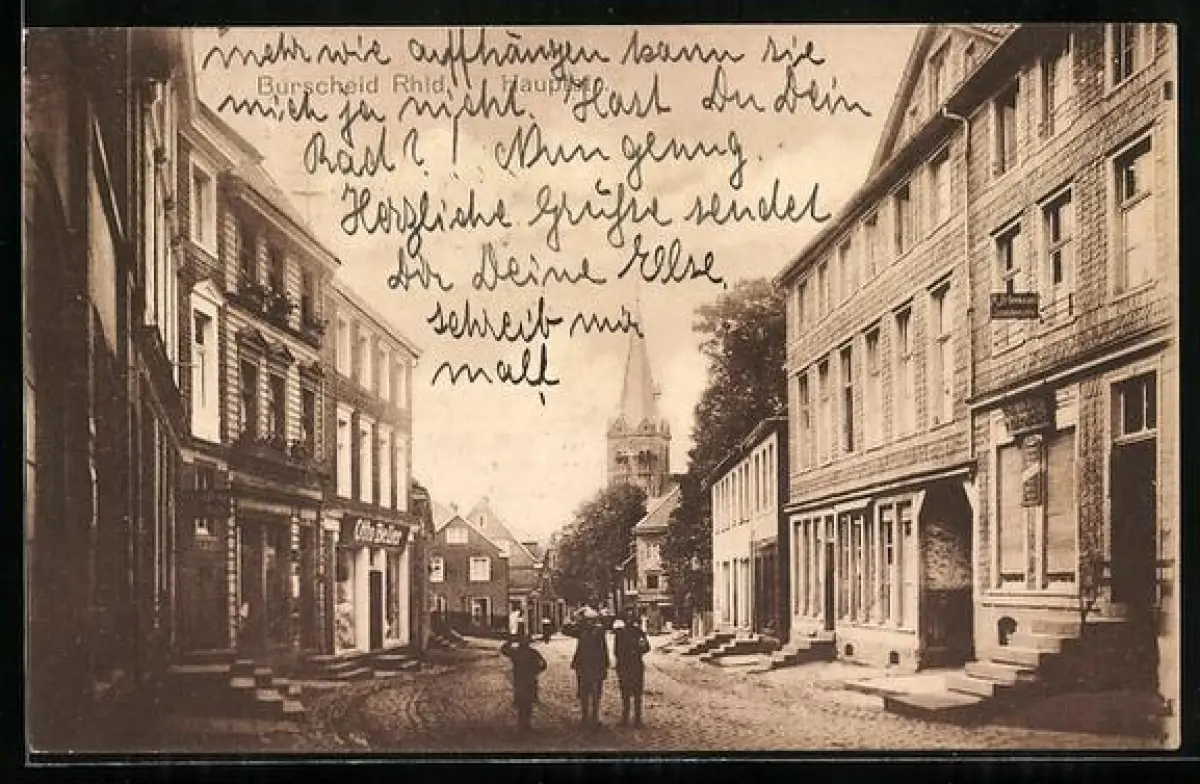 mehr wie aufhängen kann sie
Burscheid Rhld. Hauptstr.
mich ja nicht. Hast Du Dein
Rad? Nun genug.
Herzliche Grüße sendet
Dir Deine Else,
schreib mir
mall
Otto Beller